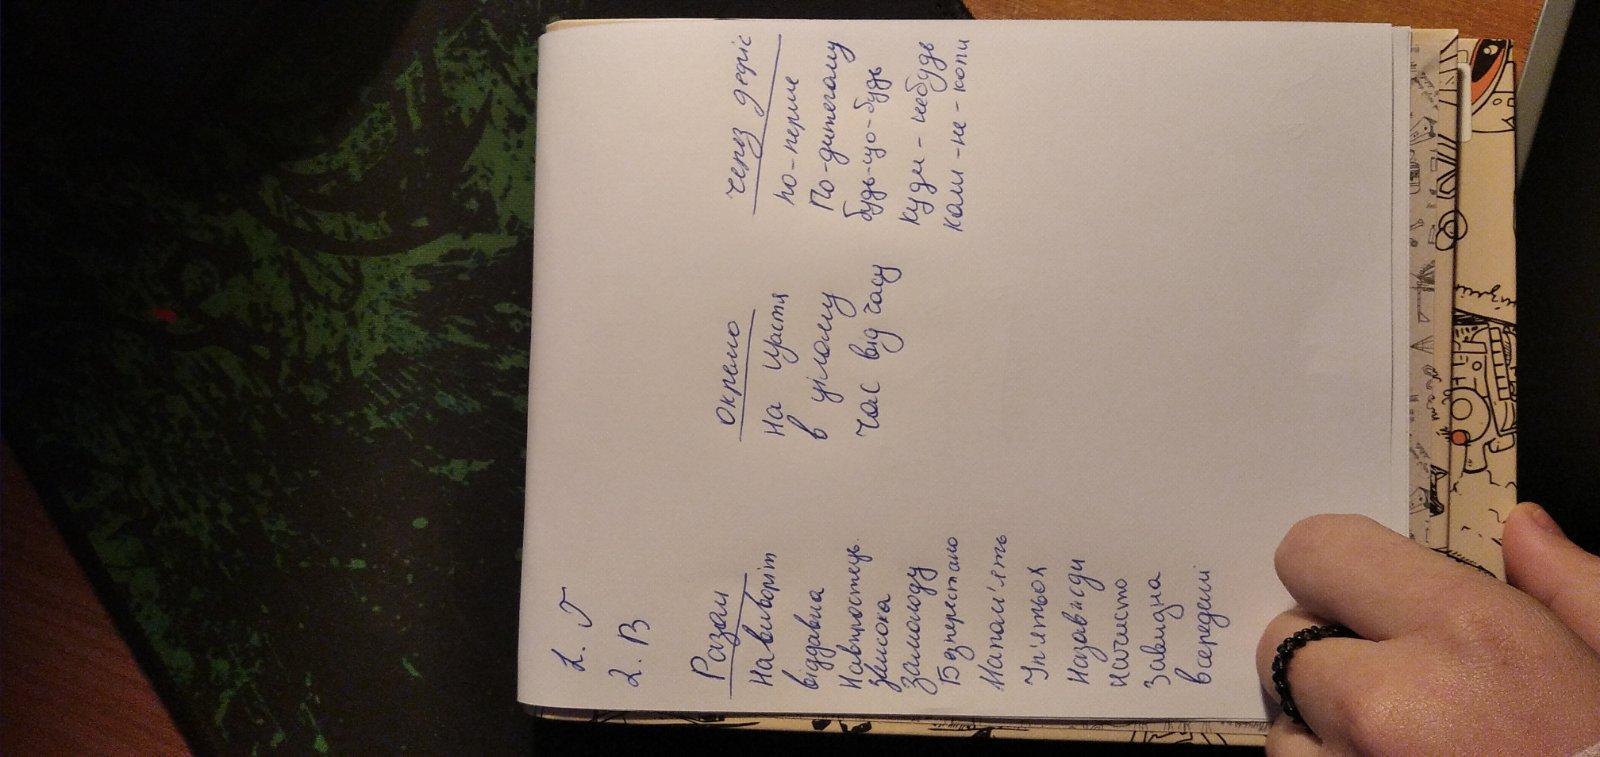 1. Г
2. В
Разом
Навиворіт
віддавна
Навпростець
замолоду
Безперестано
Напам'ять
Уп'ятьох
Назавжди
Начисто
Завидна
всередині
окремо
На щастя
в цілому
час від часу
через дефіс
по-перше
По-дитячому
будь-що-будь
куди-небудь
коли-не-коли